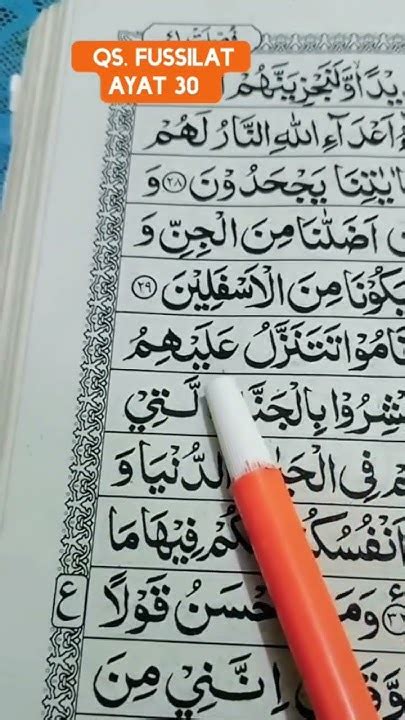 QS. FUSSILAT
AYAT 30
يْدًا وَّلَنَجْزِيَنَّهُمْ
اَعْدَآءِ اللّٰهِ النَّارُ لَهُمْ
اٰيٰتِنَا يَجْحَدُوْنَ ۝٢٨ وَ
اَضَلّٰنَا مِنَ الْجِنِّ وَ
يَكُوْنَا مِنَ الْاَسْفَلِيْنَ ۝٢٩
قَامُوْا تَتَنَزَّلُ عَلَيْهِمُ
بْشِرُوْا بِالْجَنَّ لَّتِيْ
مْ فِي الْحَيٰ الدُّنْيَا وَ
اَنْفُسُكُ كُمْ فِيْهَا مَا
وَمَ حْسَنُ قَوْلًا
ع
اِنَّنِيْ مِنَ